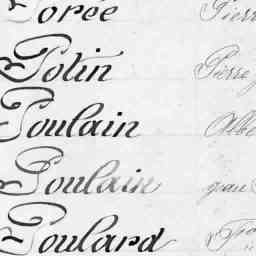 Porée Pierre
Potin Pierre
Poulain Albe
Poulain Jean
Poulard